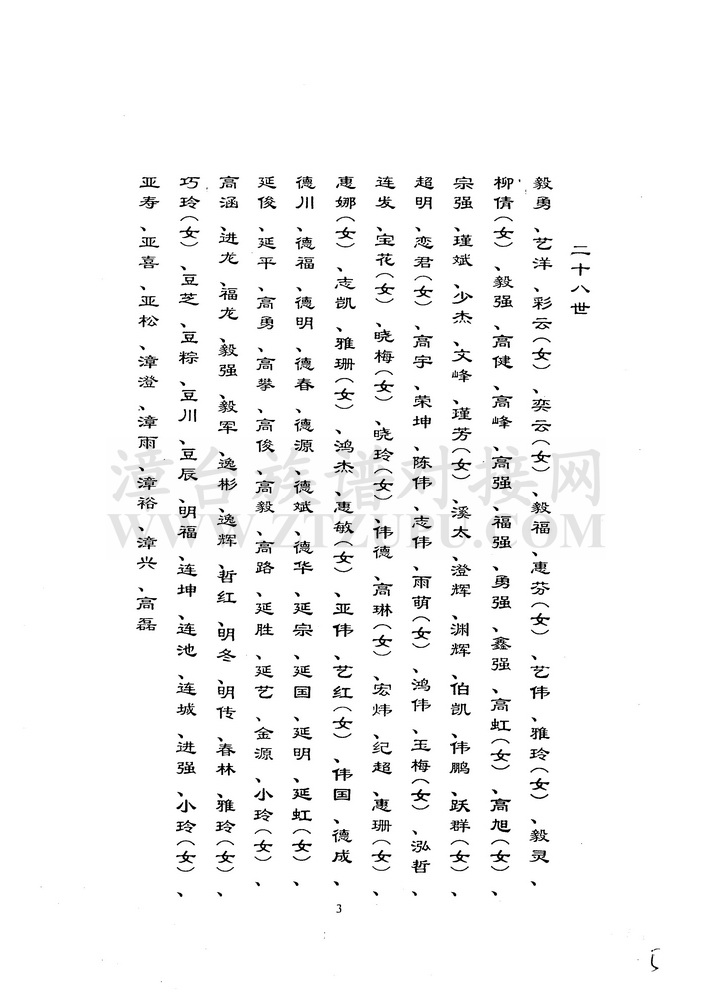 二十八世
毅勇、艺洋、彩云(女)、奕云(女)、毅福、惠芬(女)、艺伟、雅玲(女)、毅灵、
柳倩(女)、毅强、高健、高峰、高强、福强、勇强、鑫强、高虹(女)、高旭(女)、
宗强、瑾斌、少杰、文峰、瑾芳(女)、溪太、澄辉、渊辉、伯凯、伟鹏、跃群(女)、
超明、恋君(女)、高宇、荣坤、陈伟、志伟、雨萌(女)、鸿伟、玉梅(女)、泓哲
连发、宝花(女)、晓梅(女)、晓玲(女)、伟德、高琳(女)、宏炜、纪超、惠珊(女)、
惠娜(女)、志凯、雅珊(女)、鸿杰、惠敏(女)、亚伟、艺红(女)、伟国、德成、
德川、德福、德明、德春、德源、德斌、德华、延宗、延国、延明、延虹(女)、
延俊、延平、高勇、高攀、高俊、高毅、高路、延胜、延艺、金源、小玲(女)、
高涵、进龙、福龙、毅强、毅军、逸彬、逸辉、哲红、明冬、明传、春林、雅玲(女)、
巧玲(女)、豆芝、豆粽、豆川、豆辰、明福、连坤、连池、连城、进强、小玲(女)、
亚寿、亚喜、亚松、漳澄、漳雨、漳裕、漳兴、高磊
3
漳台族谱对接网
WWW.ZTZUPU.COM